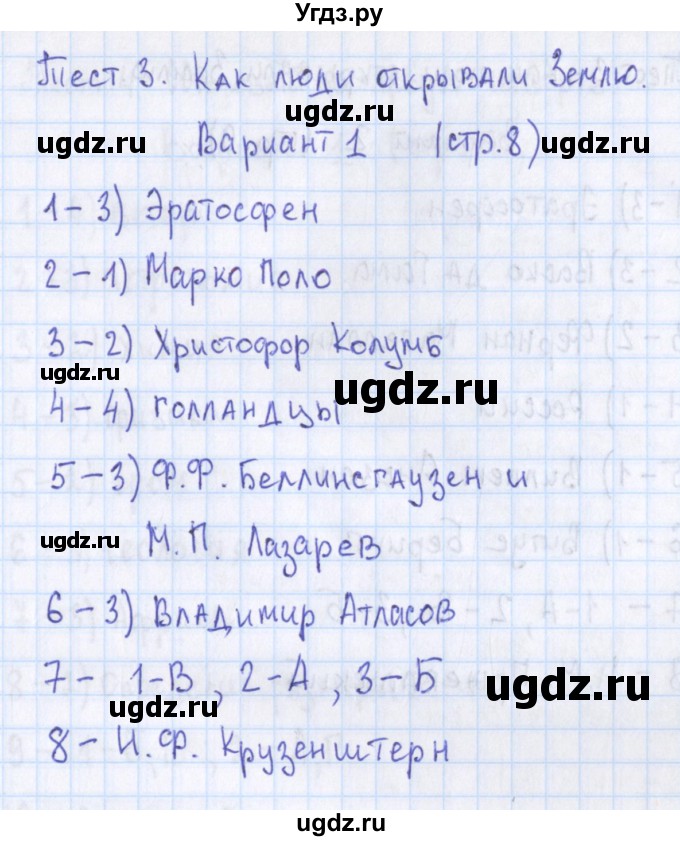 Угдз.ру
Тест 3. Как люди открывали Землю.
ugdz.ru
ugdz.ru Вариант 1 (стр.8) ugdz.ru
1 - 3) Эратосфен
2 - 1) Марко Поло
3 - 2) Христофор Колумб
ugdz.ru ugdz.ru
4 - 4) голландцы
5 - 3) Ф.Ф. Беллинсгаузен и
ugdz.ru М. П. Лазарев
6 - 3) Владимир Атласов
7 - 1-В, 2-А, 3-Б ugdz.ru
ugdz.ru
8 - И. Ф. Крузенштерн
ugdz.ru ugdz.ru